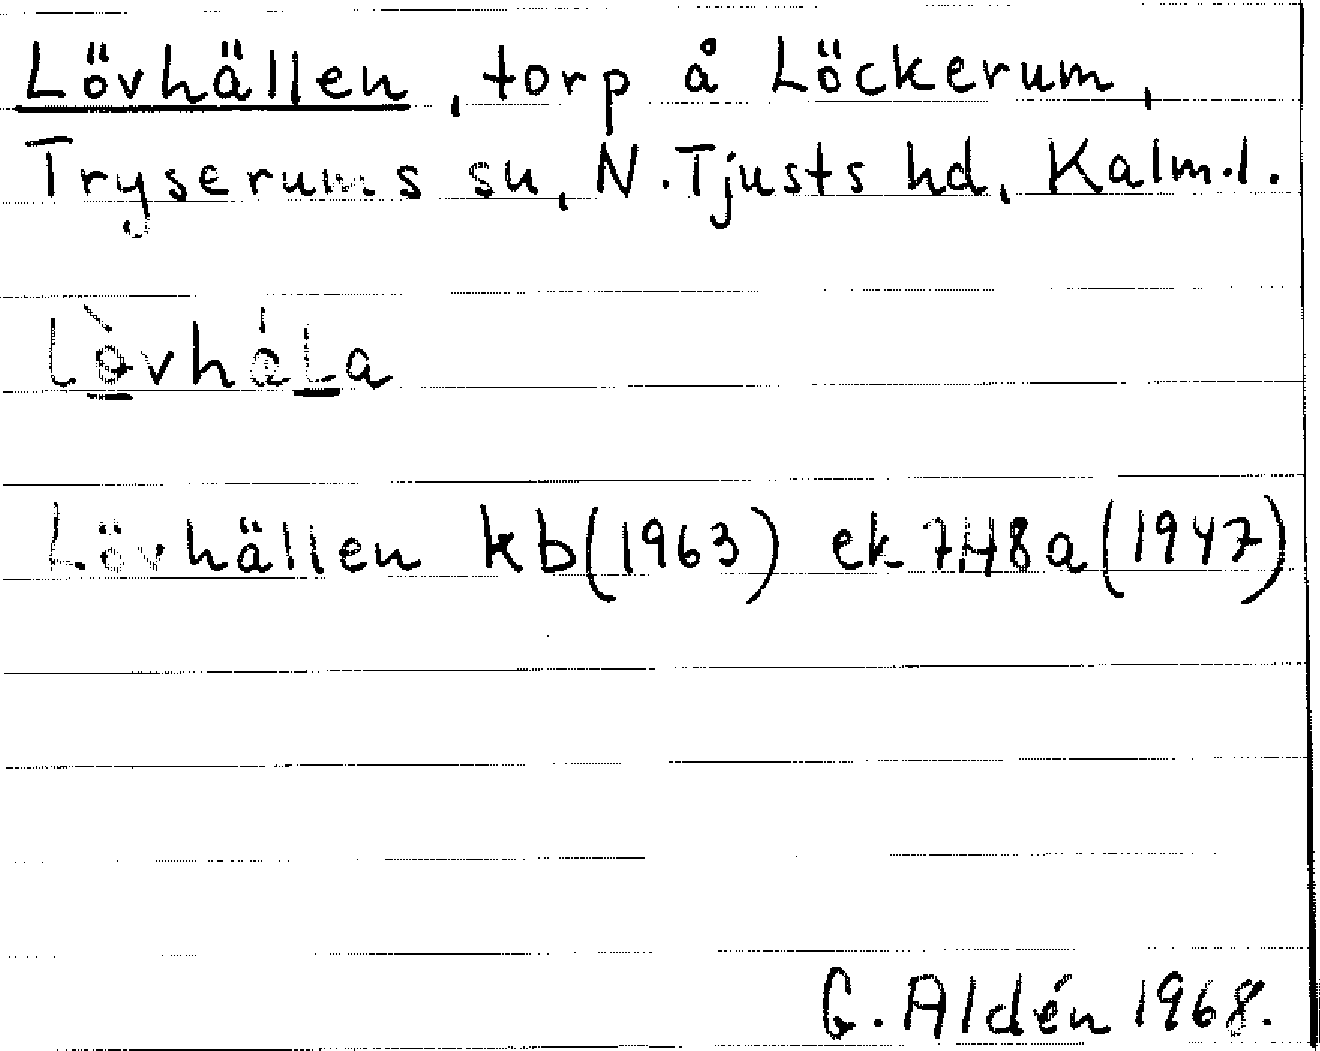 Lövhällen, torp å Löckerum,
Tryserums sn, N. Tjusts hd, Kalm.l.
Lövhällen kb(1963) ek 7H8a(1947)
G. Aldén 1968.